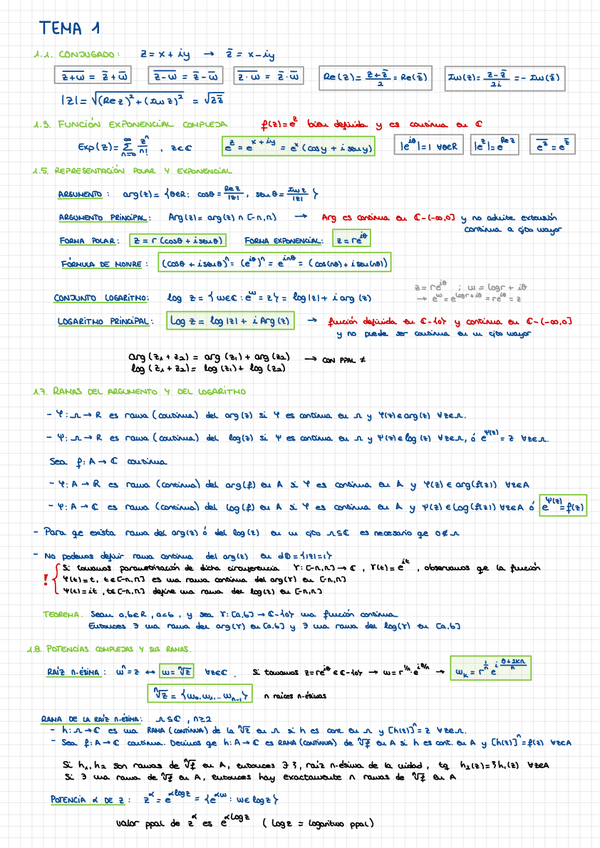 TEMA 1
1.1. CONJUGADO: z = x + iy → z̄ = x - iy
\overline{z+ω} = z̄ + ω̄  \overline{z-ω} = z̄ - ω̄  \overline{z·ω} = z̄·ω̄  Re(z) = (z+z̄)/2 = Re(z̄)  Im(z) = (z-z̄)/2i = - Im(z̄)
|z| = √((Re z)² + (Im z)²) = √(z z̄)
1.3. FUNCIÓN EXPONENCIAL COMPLEJA f(z) = e^z bien definida y es continua en ℂ
Exp(z) = Σ_{n=0}^{∞} z^n/n! , z∈ℂ  e^z = e^{x+iy} = e^x (cos y + i sen y)  |e^{iθ}| = 1 ∀θ∈ℝ  |e^z| = e^{Re z}  \overline{e^z} = e^{z̄}
1.5. REPRESENTACIÓN POLAR Y EXPONENCIAL
ARGUMENTO: arg(z) = {θ∈ℝ: cosθ = Re z/|z|, senθ = Im z/|z|}
ARGUMENTO PRINCIPAL: Arg(z) = arg(z) ∩ (-π,π] → Arg es continua en ℂ-(-∞,0] y no admite extensión
continua a cjto mayor
FORMA POLAR: z = r (cosθ + i senθ)  FORMA EXPONENCIAL: z = re^{iθ}
FÓRMULA DE MOIVRE: (cosθ + i senθ)^n = (e^{iθ})^n = e^{inθ} = (cos(nθ) + i sen(nθ))
z = re^{iθ} ; ω = log r + iθ
CONJUNTO LOGARITMO: log z = {ω∈ℂ: e^ω = z} = log|z| + i arg(z)  → e^ω = e^{log r + iθ} = re^{iθ} = z
LOGARITMO PRINCIPAL: Log z = log|z| + i Arg(z) → función definida en ℂ-{0} y continua en ℂ-(-∞,0]
y no puede ser continua en un cjto mayor
arg(z₁ + z₂) = arg(z₁) + arg(z₂) → CON PPAL ≠
log(z₁ + z₂) = log(z₁) + log(z₂)
1.7. RAMAS DEL ARGUMENTO Y DEL LOGARITMO
- Ψ: Ω → ℝ es rama (continua) del arg(z) si Ψ es continua en Ω y Ψ(z) ∈ arg(z) ∀z∈Ω.
- Ψ: Ω → ℝ es rama (continua) del log(z) si Ψ es continua en Ω y Ψ(z) ∈ log(z) ∀z∈Ω, ó e^{Ψ(z)} = z ∀z∈Ω
Sea f: A → ℂ continua
- Ψ: A → ℝ es rama (continua) del arg(f) en A si Ψ es continua en A y Ψ(z) ∈ arg(f(z)) ∀z∈A
- Ψ: A → ℂ es rama (continua) del Log(f) en A si Ψ es continua en A y Ψ(z) ∈ Log(f(z)) ∀z∈A ó e^{Ψ(z)} = f(z)
- Para qe exista rama del arg(z) ó del log(z) en un cjto Ω⊆ℂ es necesario qe 0∉Ω
- No podemos definir rama continua del arg(z) en ∂D = {|z|=1}
! Si tomamos parametrización de dicha circunferencia γ: [-π,π] → ℂ, γ(t) = e^{it}, observamos qe la función
Ψ(t) = t, t∈[-π,π] es una rama continua del arg(γ) en [-π,π]
Ψ(t) = it, t∈[-π,π] define una rama del log(z) en [-π,π]
TEOREMA. Sean a,b∈ℝ, a<b, y sea γ: [a,b] → ℂ-{0} una función continua
Entonces ∃ una rama del arg(γ) en [a,b] y ∃ una rama del log(γ) en [a,b]
1.8. POTENCIAS COMPLEJAS Y SUS RAMAS.
RAÍZ n-ÉSIMA: ω^n = z ↔ ω = ⁿ√z ∀z∈ℂ. Si tomamos z = re^{iθ} ∈ ℂ-{0} → ω = r^{1/n} · e^{iθ/n} → ω_k = r^{1/n} e^{i (θ+2kπ)/n}
ⁿ√z = {ω₀, ω₁, ... ω_{n-1}}  n raíces n-ésimas
RAMA DE LA RAÍZ n-ÉSIMA: Ω⊆ℂ, n≥2
- h: Ω → ℂ es una RAMA (CONTINUA) de la ⁿ√z en Ω si h es cont. en Ω y [h(z)]^n = z ∀z∈Ω.
- Sea f: A → ℂ continua. Decimos qe h: A → ℂ es RAMA (CONTINUA) de ⁿ√f en A si h es cont. en A y [h(z)]^n = f(z) ∀z∈A
Si h₁, h₂ son ramas de ⁿ√f en A, entonces ∃ ξ, raíz n-ésima de la unidad, tq h₂(z) = ξ h₁(z) ∀z∈A
Si ∃ una rama de ⁿ√f en A, entonces hay exactamente n ramas de ⁿ√f en A
POTENCIA α DE z: z^α = e^{α log z} = {e^{αω}: ω∈log z}
valor ppal de z^α es e^{α Log z} (Log z = logaritmo ppal)